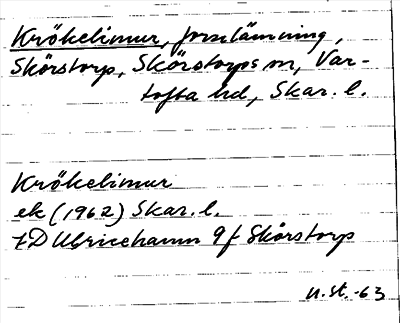 Krökelimur, fornlämning,
Skörstorp, Skörstorps sn, Var-
tofta hd, Skar. l.
Krökelimur
ek (1962) Skar. l.
7D Ulricehamn 9f Skörstorp
n. st. -63